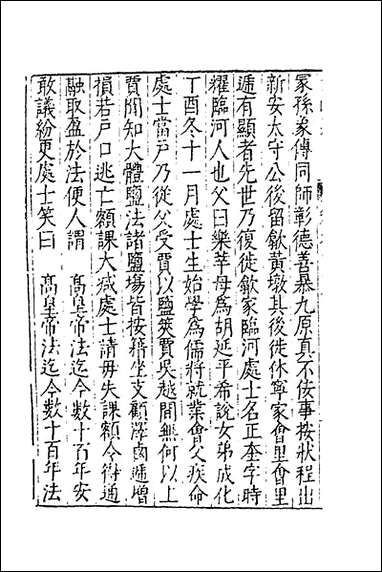 冢孫家傳同師彰德善暴九原真不佞事按狀程出
新安太守公後留歙黄墩其後徙休寧家會里會里
逓有顯者先世乃復徙歙家臨河處士名正奎字時
耀臨河人也父曰樂莘母爲胡延平希說女弟成化
丁酉冬十一月處士生始學爲儒將就業會父疾命
處士當戸乃從父受賈以鹽筴賈吳越間無何以上
賈聞知大體鹽法諸鹽場皆按籍坐支顧滂鹵逓增
損若戸口逃亡額課大减處士請毋失課額令得通
融取盈於法便人謂 高皇帝法迄今數十百年安
敢議紛更處士笑曰 高皇帝法迄今數十百年法